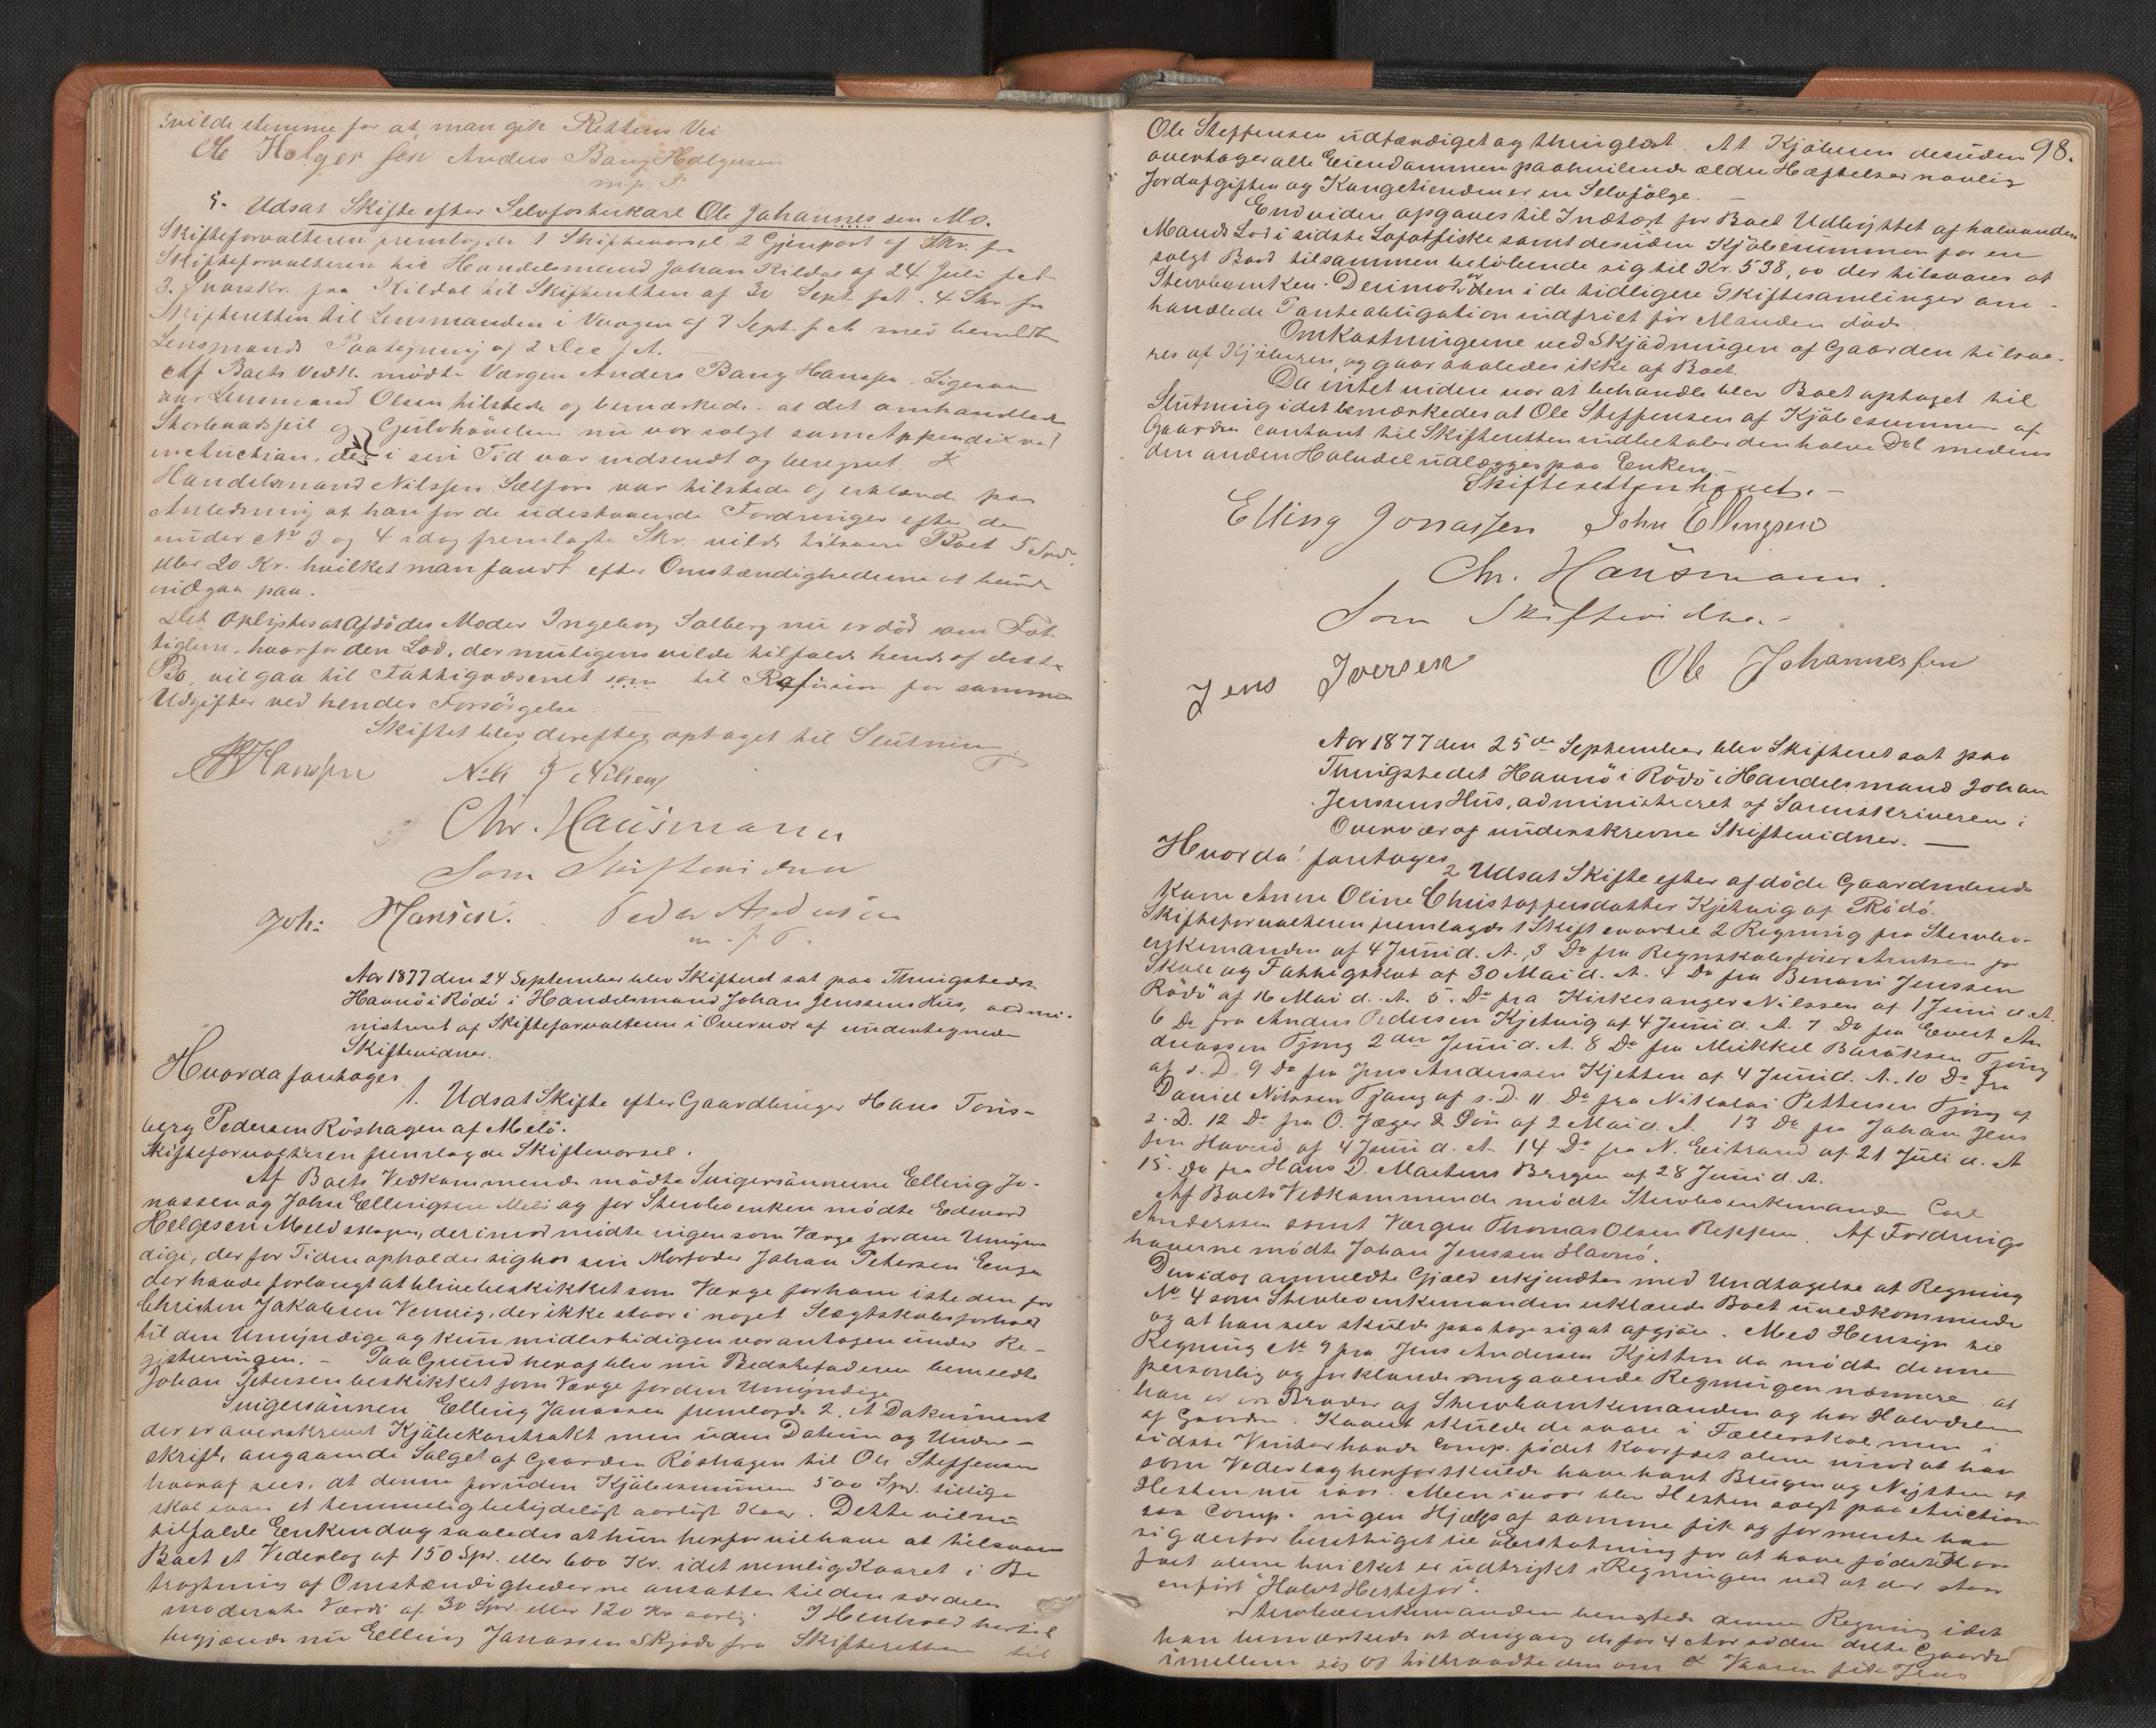 vilde stemme for at man gik Rettens Vei
Ole Holgersen Anders Bang Holgersen
m. p. P.
5. Udsat Skifte efter Selvfosterkarl Ole Johannessen Mo.
Skifteforvalteren fremlagde 1 Skiftevarsel 2 Gjenpart af Skr. fra
Skifteforvalteren til Handelsmand Johan Kildal af 24 Juli f. A.
3. Svarskr. fra Kildal til Skifteretten af 30 Sept. f. A. 4. Skr. fra
Skifteretten til Lensmanden i Vaagen af 7 Sept. f. A. med bemeldte
Lensmands Paategning af 2 Dec f. A.
Af Boets Vedk. mødte Værgen Anders Bang Hanssen. Ligesaa
var Lensmand Olsen tilstede og bemærkede at det omhandlede
Storbaadsseil og Gulvhøvelen nu var solgt som Appendix ved
Auction, der i sin Tid var indsendt og beregnet.
Handelsmand Nilssen Sælfors var tilstede og erklærede paa
Anledning at han for de udestaaende Fordringer efter de
under No 3 og 4 idag fremlagte Skr. vilde tilsvare Boet 5 Spd.
eller 20 Kr. hvilket man fandt efter Omstændighederne at burde
indgaa paa.
Det oplystes at Afdødes Moder Ingeborg Solberg nu er død som Fat-
tiglem, hvorfor den Lod, der muligens vilde tilfalde hende af dette
Bo, vil gaa til Fattigvæsenet som til Refusion for samme
Udgifter ved hendes Forsørgelse.
Skiftet blev derefter optaget til Slutning.
Hanssen Nils J Nilsen
Chr. Hausmann
Som Skiftevidner
Joh: Hansen. Peder Andersen
m. f. P.
Aar 1877 den 24 September blev Skifteret sat paa Thingstedet
Havnö i Rödö i Handelsmand Johan Jenssens Hus, admi-
nistreret af Skifteforvalteren i Overvær af undertegnede
Skiftevidner.
Hvorda foretoges
1. Udsat Skifte efter Gaardbruger Hans Tons-
berg Pedersen Röshagen af Melö.
Skifteforvalteren fremlagde Skiftevarsel.
Af Boets Vedkommende mödte Svigersönnerne Elling Jo-
nassen og John Ellingsen Melö og for Sterboenken mödte Edevard
Helgesen Meløskogen, derimod mödte ingen som Værge for den Umyn-
dige, der for Tiden opholder sig hos sin Morfader Johan Petersen Enga
der havde forlangt at blive beskikket som Værge for ham isteden for
Christen Jakobsen Vennvig, der ikke staar i noget Slægtskabsforhold
til den Umyndige og kun midlertidigen var antagen under Re-
gistreringen. - Paa Grund heraf blev nu Bedstefaderen bemeldte
Johan Petersen beskikket som Værge for den Umyndige.
Svigersönnen Elling Jonassen fremlagde 2. et Dokument
der er overskrevet Kjøbekontrakt men uden Datum og Under-
skrift, angaaende Salget af Gaarden Röshagen til Ole Steffensen
hvoraf sees, at denne foruden Kjøbesummen 500 Spd. tillige
skal svare et temmelig betydeligt aarligt Kaar. Dette vil nu
tilfalde Enken dog saaledes at hun herfor vil have at tilsvare
Boet et Vederlag af 150 Spd. eller 600 Kr. idet nemlig Kaaret i Be-
tragtning af Omstændighederne ansattes til den særdeles
moderate Værdi af 30 Spd. eller 120 Kr aarlig. I Henhold hertil
begjærede nu Elling Jonassen Skjøde fra Skifteretten til
98.
Ole Steffensen udfærdiget og thinglæst. At Kjøberen desuden
overtager alle Eiendommen paahvilende ældre Hæftelser navnlig
Jordafgiften og Kongetienden er en Selvfølge.
Endvidere opgaves til Indtægt for Boet Udbyttet af halvanden
Mands Lod i sidste Lofotfiske samt desuden Kjøbesummen for en
solgt Baad tilsammen beløbende sig til Kr. 538,00 der tilsvares af
Sterboenken. Derimod er den i de tidligere Skiftesamlinger om-
handlede Panteobligation indfriet før Mandens Död.
Omkostningerne ved Skjødningen af Gaarden tilsva-
res af Kjøberen, og gaar saaledes ikke af Boet.
Da intet videre var at behandle blev Boet optaget til
Slutning idet bemærkedes at Ole Steffensen af Kjøbesummen af
Gaarden contant til Skifteretten indbetaler den halve Del medens
den anden Halvdel udlægges paa Enken.
Skifteretten hævet. -
Elling Jonassen John Ellingsen
Chr. Hausmann.
Som Skiftevidner
Jens Iversen Ole Johannessen
Aar 1877 den 25de September blev Skifteret sat paa
Thingstedet Havnö i Rödö i Handelsmand Johan
Jenssens Hus, administreret af Sorenskriveren i
Overvær af underskrevne Skiftevidner. —
Hvorda! foretoges
2 Udsat Skifte efter afdöde Gaardmands
Kone Anne Oline Christoffersdatter Kjelvig af Rödö.
Skifteforvalteren fremlagde 1 Skiftevarsel 2 Regning fra Sterbo-
enkemanden af 4 Juni d. A. 3 Do fra Regnskabsfører Arntsen for
Skole og Fattigskat af 30 Mai d. A. 4 Do fra Benoni Jenssen
Rödö af 16 Mai d. A. 5. Do fra Kirkesanger Nilssen af 1 Juni d. A.
6 Do fra Anders Pedersen Kjelvig af 4 Juni d. A. 7 Do fra Evert An
dreassen Tjong 2den Juni d. A. 8 Do fra Mikkel Baraksen Tjong
af s. D. 9 Do fra Jens Anderssen Kjetten af 4 Juni d. A. 10 Do fra
Daniel Nilssen Tjong af s. D. 11. Do fra Nikolai Pettersen Tjong af
s. D. 12 Do fra O. Jæger & Søn af 2 Mai d. A. 13 Do fra Johan Jens
sen Havnö af 4 Juni d. A. 14 Do fra N. Eeitrand af 21 Juli d. A
15. Do fra Hans D. Martens Bergen af 28 Juni d. A.
Af Boets Vedkommende mödte Sterboenkemanden Carl
Anderssen samt Værgen Thomas Olsen Reppen. Af Fordrings
haverne mödte Johan Jenssen Havnö.
Den idag anmeldte Gjæld erkjendtes med Undtagelse af Regning
No 4 som Sterboenkemanden erklærede Boet uvedkommende
og at han selv skulde paatage sig at afgjøre. Med Hensyn til
Regning No 9 fra Jens Andersen Kjetten da mødte denne
personlig og forklarede angaaende Regningen nærmere at
han er en Broder af Sterboenkemanden og har Halvdelen
af Gaarden. Kaaret skulde de svare i Fællesskab men i
sidste Vinter havde Comp. födet Koarfæet alene imod at han
som Vederlag herfor skulde have havt Brugen og Nytten af
Hesten nu ivaar. Men ivaar blev Hesten solgt paa Auction
saa Comp. ingen Hjælp af samme fik og formente han
sig derfor berettiget til Erstatning for at have födet Kaar
fæet alene hvilket er udtrykt i Regningen ved at der staar
anført "Halvt Hestefor".
Sterboenkemanden benegtede denne Regning idet
han bemærkede at dengang de for 4 Aar siden delte Gaarden
imellem sig og tiltraadte den om Vaaren fik Jens